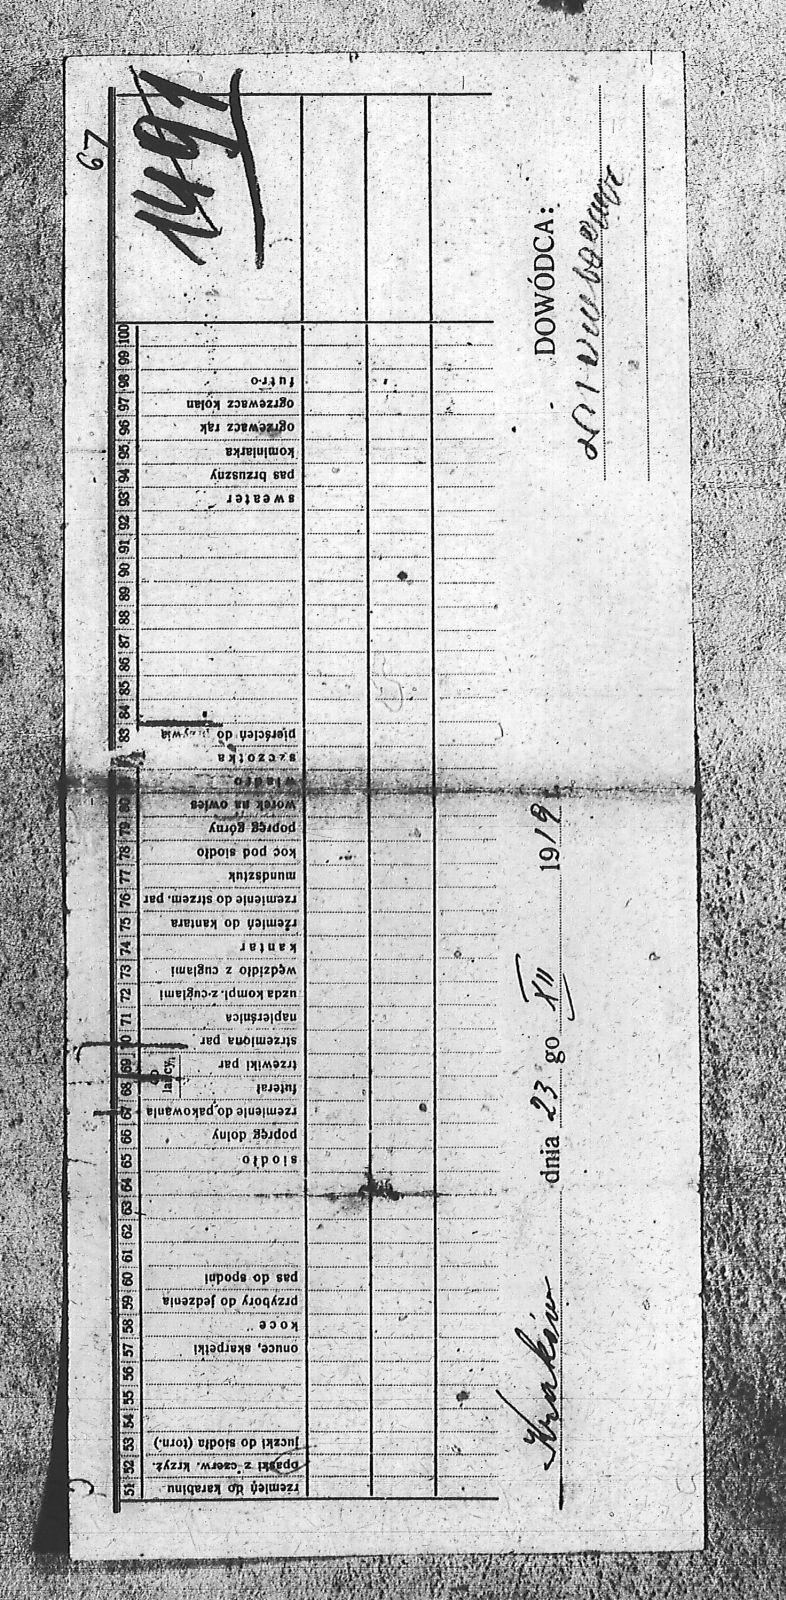 67
1491
51 rzemień do karabinu
52 opaski z czerw. krzyż.
53 juczki do siodła (torn.)
54
55
56
57 onuce, skarpetki
58 koce
59 przybory do jedzenia
60 pas do spodni
61
62
63
64
65 siodło
66 popręg dolny
67 rzemienie do pakowania
68 futerał
69 trzewiki par
70 strzemiona par
71 napierśnica
72 uzda kompl. z cuglami
73 wędzidło z cuglami
74 kantar
75 rzemień do kantara
76 rzemienie do strzem. par
77 mundsztuk
78 koc pod siodło
79 popręg górny
80 worek na owies
wiadro
szczotka
83 pierścień do przywią
84
85
86
87
88
89
90
91
92
93 sweater
94 pas brzuszny
95 kominiarka
96 ogrzewacz rąk
97 ogrzewacz kolan
98 futro
99
100
Kraków dnia 23 go XII 1919
DOWÓDCA: